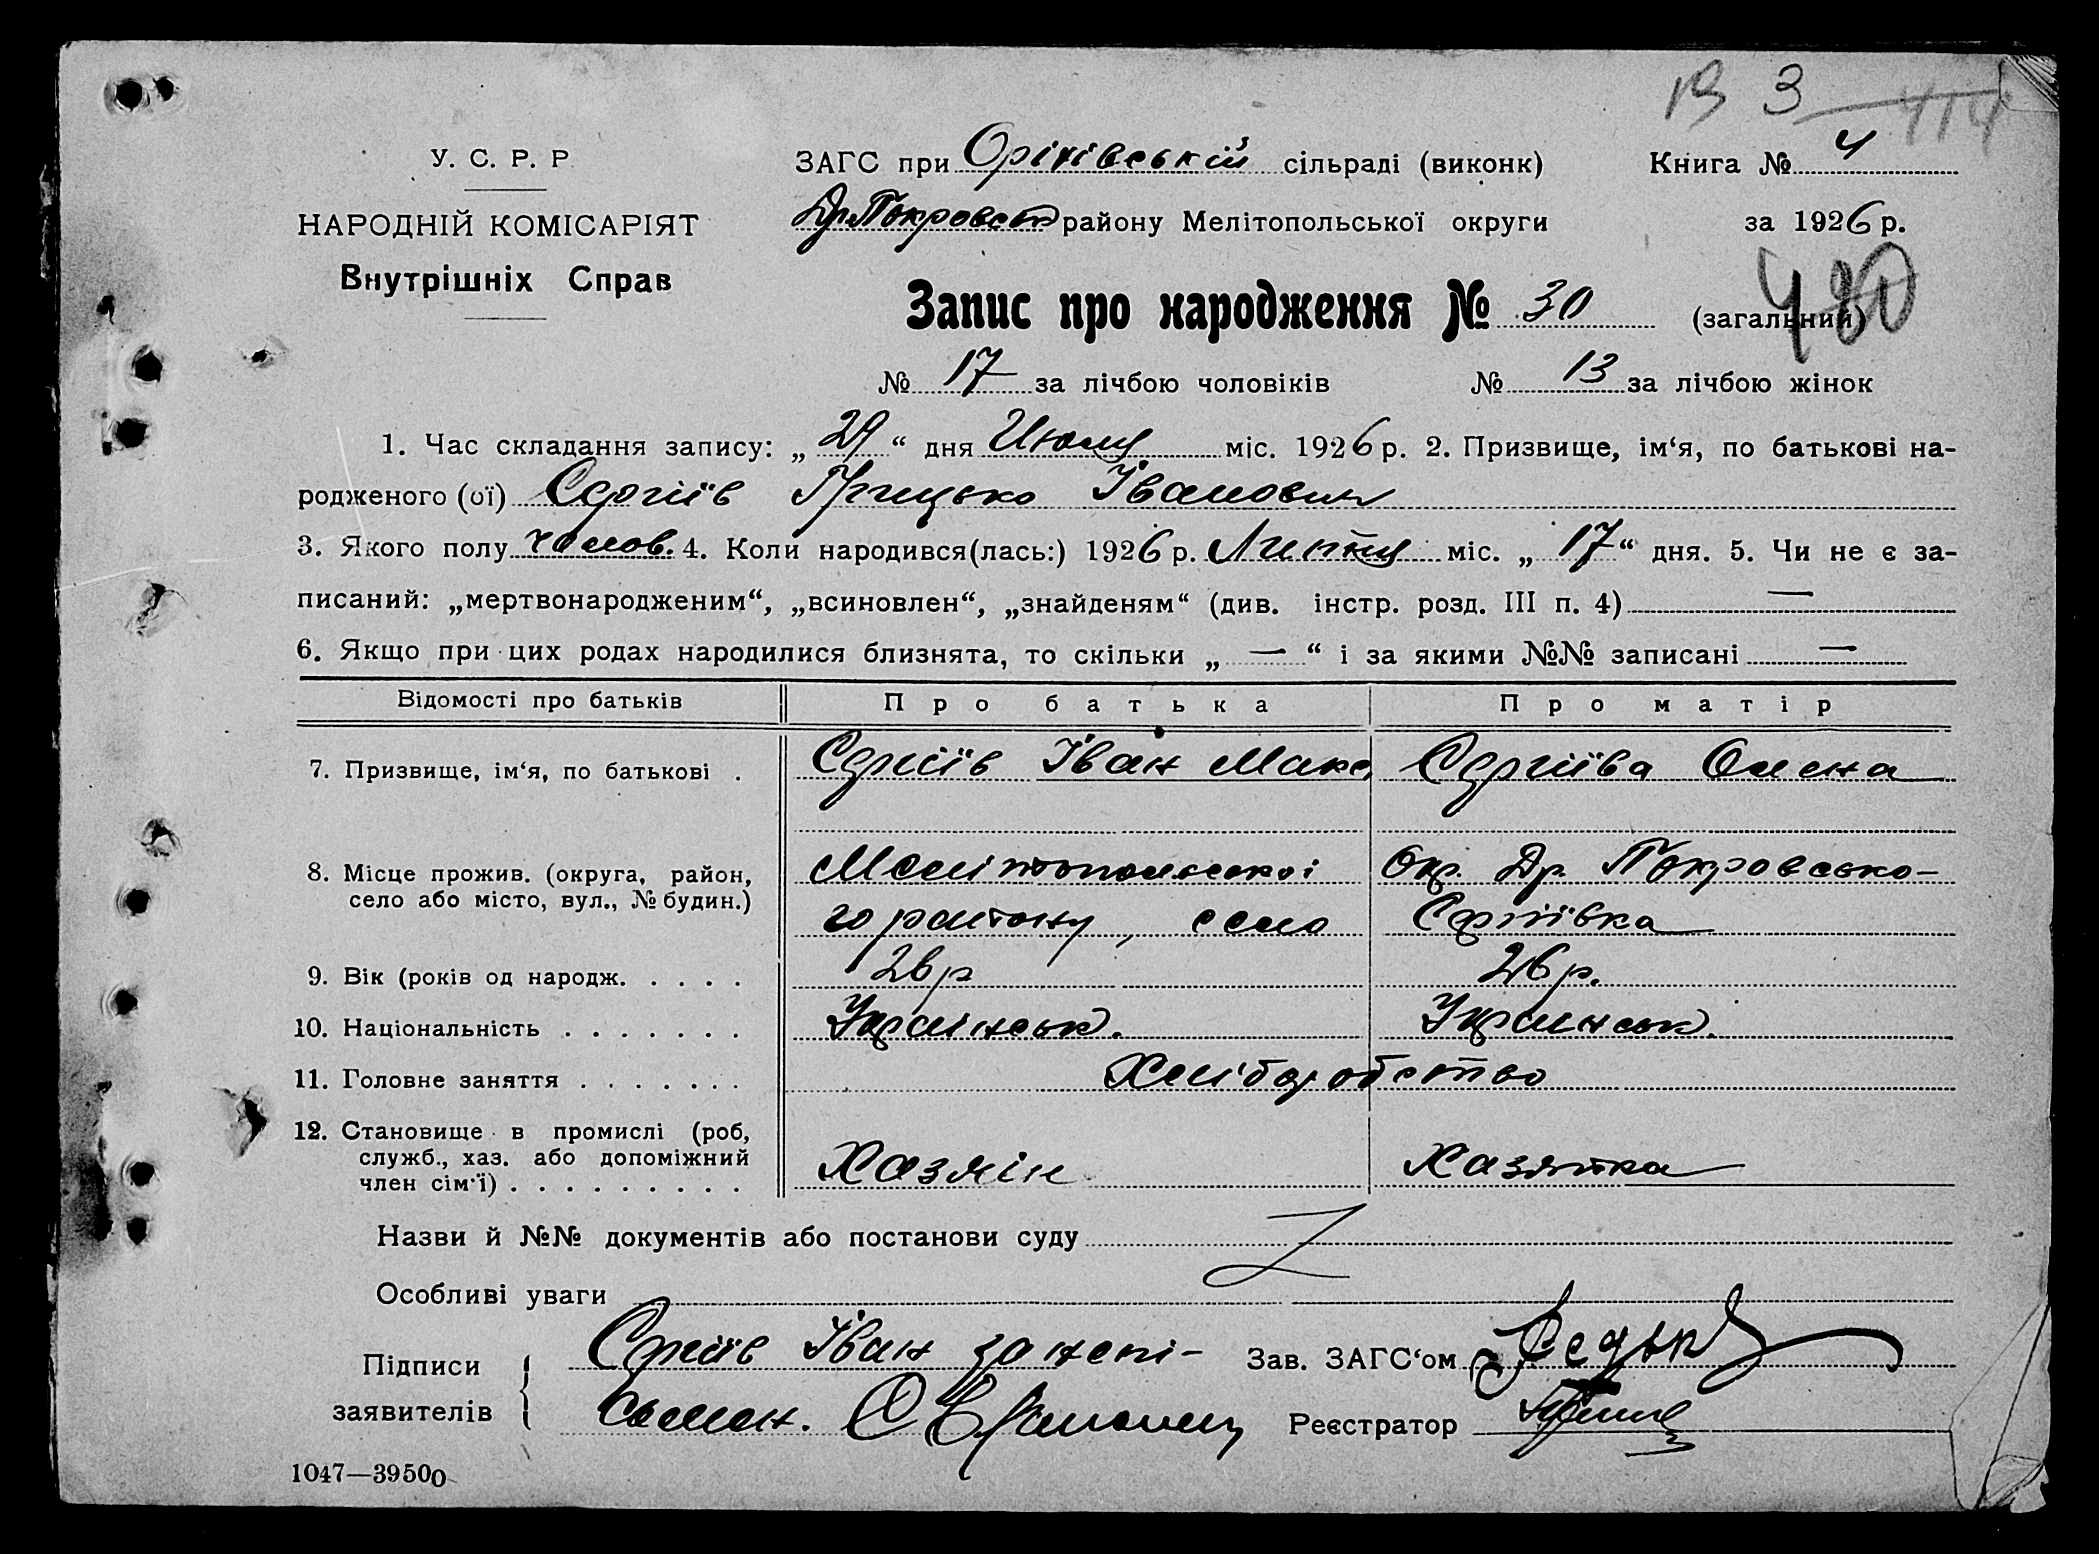 В 3 414
У. С. Р. Р.
ЗАГС при Оріхівській сільраді (виконк) Книга № 4
НАРОДНІЙ КОМІСАРІЯТ
Др. Покровськ району Мелітопольської округи за 1926 р.
Внутрішніх Справ
480
Запис про народження № 30 (загальний)
№ 17 за лічбою чоловіків № 13 за лічбою жінок
1. Час складання запису: „ 29 “ дня Июля міс. 1926 р. 2. Призвище, ім‘я, по батькові на-
родженого (ої) Сергіїв Грицько Іванович
3. Якого полу чолов. 4. Коли народився(лась:) 1926 р. Липня міс. „ 17 “ дня. 5. Чи не є за-
писаний: „мертвонародженим“, „всиновлен“, „знайденям“ (див. інстр. розд. III п. 4) —
6. Якщо при цих родах народилися близнята, то скільки „ — “ і за якими №№ записані —
Відомості про батьків Про батька Про матір
7. Призвище, ім‘я, по батькові . Сергіїв Іван Макс. Сергіїва Олена
8. Місце прожив. (округа, район, Мелітопольської Окр. Др. Покровсько-
село або місто, вул., № будин.) го району, село Сергіївка
9. Вік (років од народж. . . . . 26 р 26 р.
10. Національність . . . . . . . Українськ. Украинськ.
11. Головне заняття . . . . . . . Хліборобство
12. Становище в промислі (роб,
служб., хаз. або допоміжний Хазяін Хазяйка
член сім‘ї) . . . . . . . . .
Назви й №№ документів або постанови суду
Особливі уваги
Підписи Сергіїв Іван за непі- Зав. ЗАГС‘ом
заявителів сьмен. Реєстратор
1047—39500